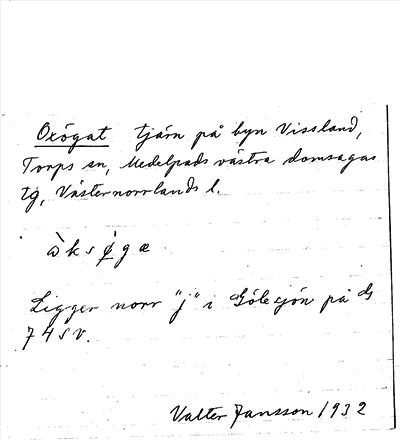 Oxögat tjärn på byn Vissland,
Torps sn, Medelpads västra domsagas
tg, Västernorrlands l.
òksø̀gæ
Ligger norr "j" i Gölesjön på ds
74SV.
Valter Jansson 1932